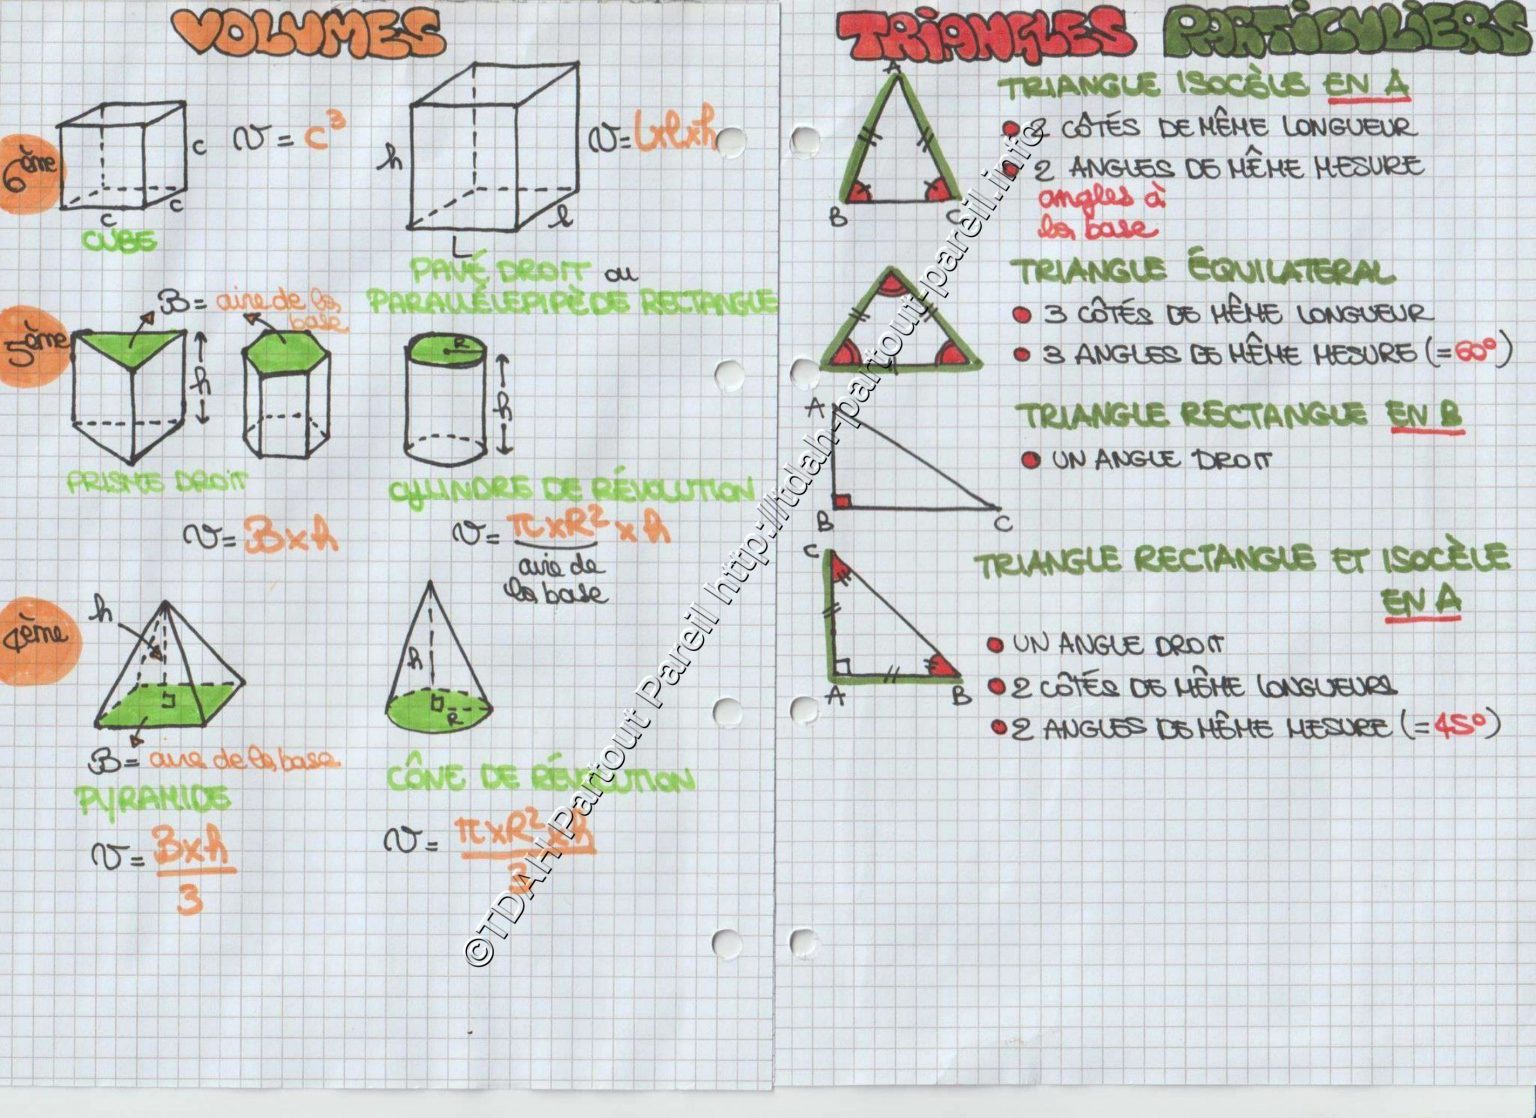 VOLUMES
6ème
c
c
c
V = c³
CUBE
h
L
l
V = L x l x h
PAVÉ DROIT ou
PARALLÉLEPIPÈDE RECTANGLE
5ème
B = aire de la
base
h
PRISME DROIT
V = B x h
R
h
CYLINDRE DE RÉVOLUTION
V = π x R² x h
aire de
la base
4ème
h
B = aire de la base
PYRAMIDE
V = B x h
3
h
R
CÔNE DE RÉVOLUTION
V = π x R² x h
3
TRIANGLES PARTICULIERS
A
B
C
TRIANGLE ISOCÈLE EN A
2 CÔTÉS DE MÊME LONGUEUR
2 ANGLES DE MÊME MESURE
angles à
la base
TRIANGLE ÉQUILATERAL
3 CÔTÉS DE MÊME LONGUEUR
3 ANGLES DE MÊME MESURE (= 60°)
A
B
C
TRIANGLE RECTANGLE EN B
UN ANGLE DROIT
C
A
B
TRIANGLE RECTANGLE ET ISOCÈLE
EN A
UN ANGLE DROIT
2 CÔTÉS DE MÊME LONGUEURS
2 ANGLES DE MÊME MESURE (= 45°)
©TDAH Partout Pareil http://tdah-partout-pareil.info